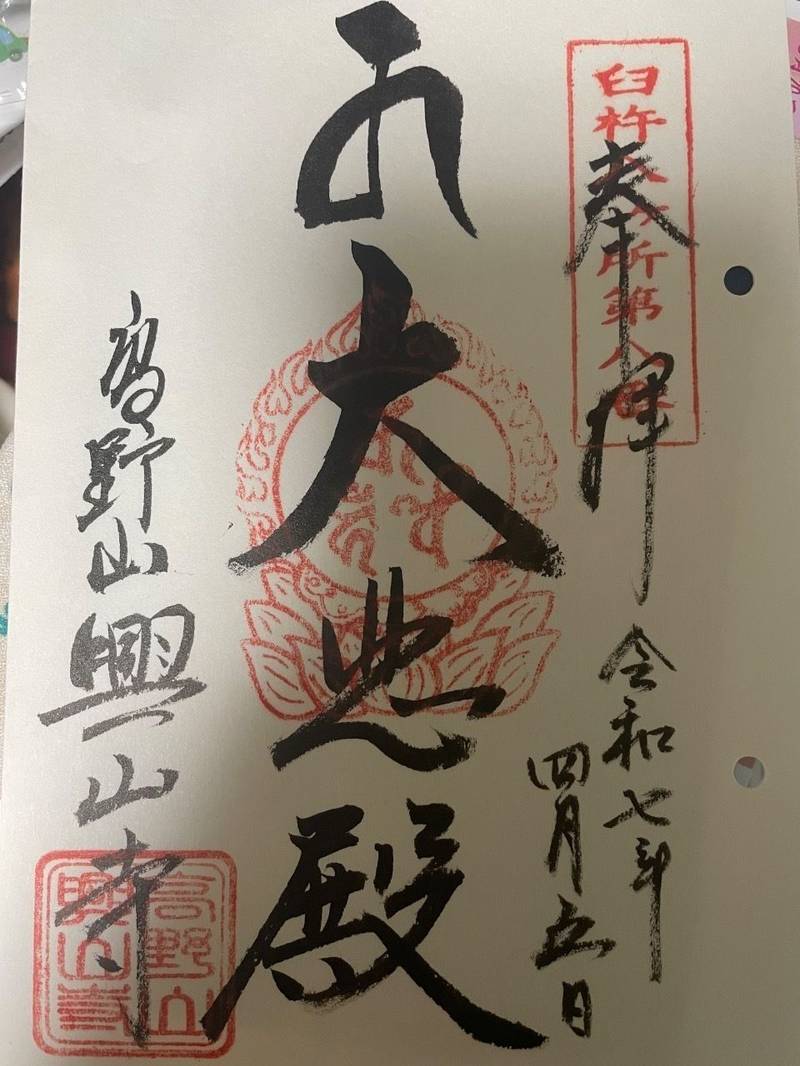 臼杵 所第八番
奉拝
令和七年
四月五日
大悲殿
高野山興山寺
高野山
興山寺